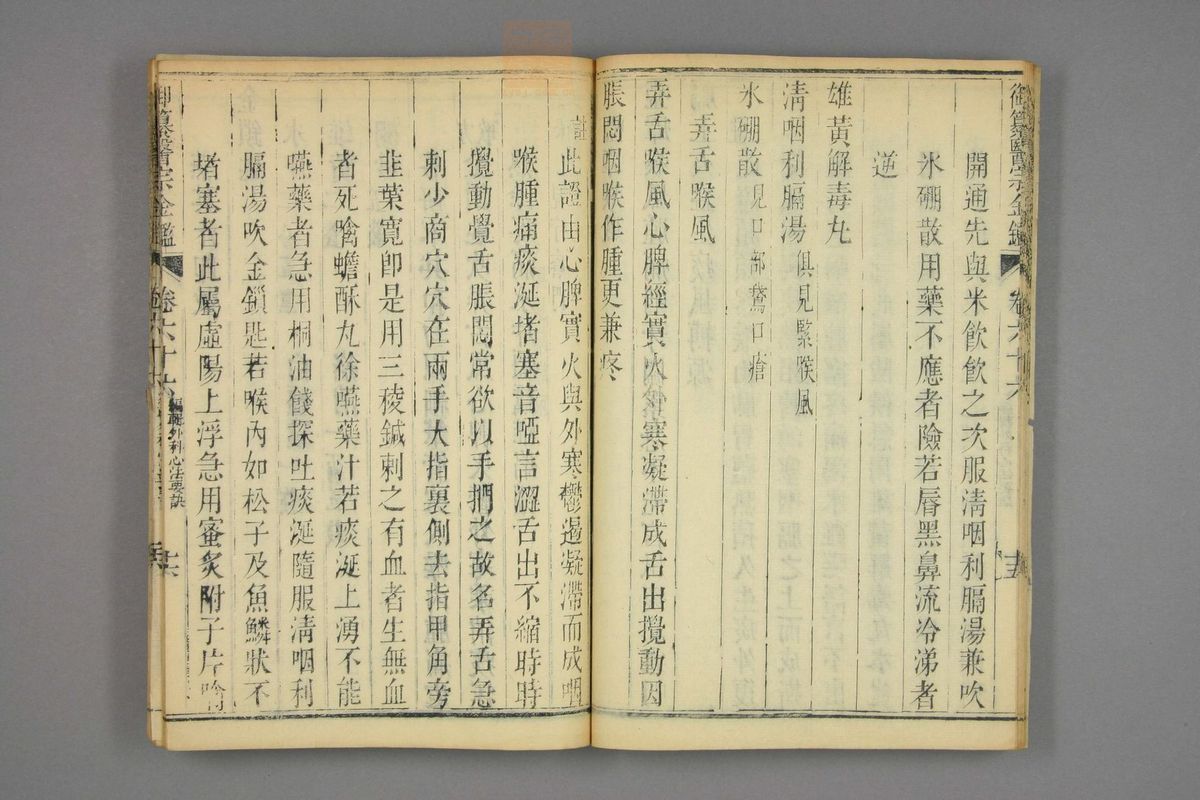 御纂醫宗金鑑 卷六十六
開通先與米飲飲之次服淸咽利膈湯兼吹
氷硼散用藥不應者險若唇黑鼻流冷涕者
逆
雄黃解毒丸
淸咽利膈湯俱見緊喉風
氷硼散見口部鵞口瘡
弄舌喉風
弄舌喉風心脾經實火外寒凝滯成舌出攪動因
脹悶咽喉作腫更兼疼
註此證由心脾實火與外寒鬱遏凝滯而成咽
喉腫痛痰涎堵塞音啞言澀舌出不縮時時
攪動覺舌脹悶常欲以手捫之故名弄舌急
刺少商穴穴在兩手大指裏側去指甲角旁
韭葉寬卽是用三稜鍼刺之有血者生無血
者死噙蟾酥丸徐嚥藥汁若痰涎上湧不能
嚥藥者急用桐油餞探吐痰涎隨服淸咽利
膈湯吹金鎖匙若喉內如松子及魚鱗狀不
堵塞者此屬虛陽上浮急用蜜炙附子片噙
御纂醫宗金鑑 卷六十六 編輯外科心法要訣